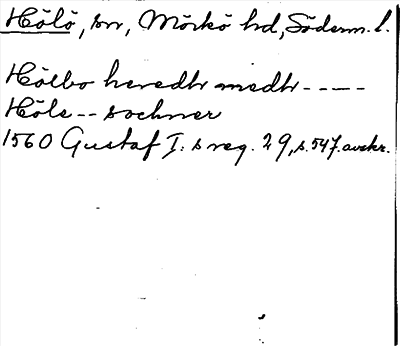 Hölö, sn, Mörkö hd, Söderm. l.
Hölbo heredh medh - - - - -
Höle - - sochner
1560 Gustaf I:s reg. 29, s. 547. avskr.